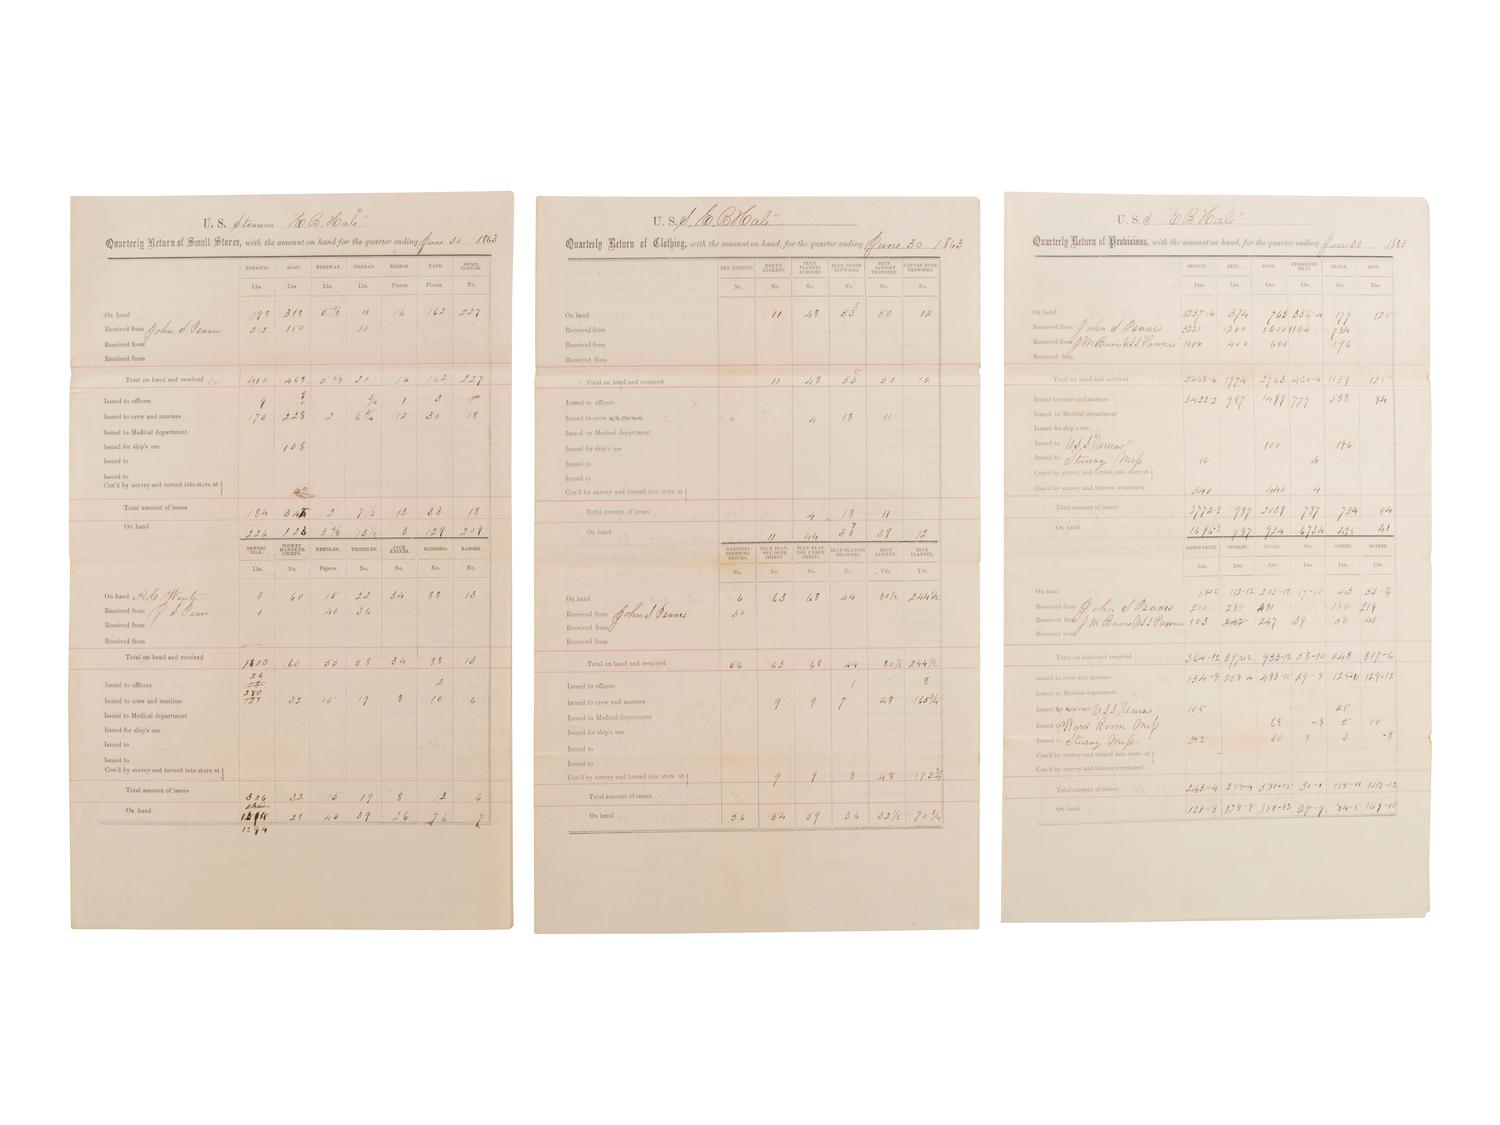 U. S. Steamer "E. B. Hale"
Quarterly Return of Small Stores, with the amount on hand for the quarter ending June 30 1863
TOBACCO. SOAP. BEESWAX. THREAD. RIBBON. TAPE. SPOOL COTTON.
Lbs. Lbs. Lbs. Lbs. Pieces. Pieces. No.
On hand 198 318 11 16 162 227
Received from John S. Isaacs 212 150 10
Received from
Received from
Total on hand and received 410 468 21 16 162 227
Issued to officers 9 1 3
Issued to crew and marines 175 228 2 12 30 18
Issued to Medical department
Issued for ship's use 108
Issued to
Issued to
Con'd by survey and turned into store at }
Total amount of issues 184 2 7½ 13 33 18
On hand 226 13½ 3 129 209
SEWING SILK. POCKET HANDKERCHIEFS. NEEDLES. THIMBLES. JACK KNIVES. SCISSORS. RAZORS.
Lbs. No. Papers. No. No. No. No.
On hand 60 15 22 34 88 13
Received from 40 36
Received from
Received from
Total on hand and received 60 58 34 88 13
Issued to officers 2
Issued to crew and marines 32 15 19 8 10 6
Issued to Medical department
Issued for ship's use
Issued to
Issued to
Con'd by survey and turned into store at }
Total amount of issues 306 32 15 19 8 12 6
On hand 28 40 39 26 76 7
U. S. S. E. B. Hale"
Quarterly Return of Clothing, with the amount on hand, for the quarter ending June 30 1863
PEA JACKETS. ROUND JACKETS. BLUE FLANNEL JUMPERS. BLUE CLOTH TROWSERS. BLUE SATINET TROWSERS. CANVAS DUCK TROWSERS.
No. No. No. No. No. No.
On hand 11 48 53 50 12
Received from
Received from
Received from
Total on hand and received 11 48 53 50 12
Issued to officers
Issued to crew and marines 4 18 11
Issued to Medical department
Issued for ship's use
Issued to
Issued to
Con'd by survey and turned into store at }
Total amount of issues 4 18 11
On hand 11 44 39 12
BARNSLEY SHEETING FROCKS. BLUE FLANNEL OVER SHIRTS. BLUE FLANNEL UNDER SHIRTS. BLUE FLANNEL DRAWERS. BLUE SATINET. BLUE FLANNEL.
No. No. No. No. Yds. Yds.
On hand 6 63 68 44 80½ 244½
Received from John S Isaacs 50
Received from
Received from
Total on hand and received 56 63 68 44 80½ 244½
Issued to officers 1 8
Issued to crew and marines 9 9 7 48 165¾
Issued to Medical department
Issued for ship's use
Issued to
Issued to
Con'd by survey and turned into store at } 9 9 8 48 173¾
Total amount of issues
On hand 56 54 59 36 32½ 70¾
U. S. S "E B Hale"
Quarterly Return of Provisions, with the amount on hand, for the quarter ending June 30 1863
BISCUIT. BEEF. PORK. PRESERVED MEAT. FLOUR. RICE.
Lbs. Lbs. Lbs. Lbs. Lbs. Lbs.
On hand 1237-4 374 763 356-4 179 125
Received from John S Isaacs 3225 1200 1600 1104 784
Received from 400 600 196
Received from
Total on hand and received 5468-4 1974 2963 1460-4 1159 125
Issued to crew and marines 3422-2 987 1499 779 538 84
Issued to Medical department
Issued for ship's use
Issued to U.S.S. "Uncas" 100 196
Issued to Steerage Mess 10 4
Con'd by survey and turned into store at }
Con'd by survey and thrown overboard 340 440 4
Total amount of issues 3772-2 987 2039 787 734 84
On hand 987 924 425 41
DRIED FRUIT. PICKLES. SUGAR. TEA. COFFEE. BUTTER.
Lbs. Lbs. Lbs. Lbs. Lbs. Lbs.
On hand 112-12 205-12 19-10 53-6
Received from John S Isaacs 210 285 481 150 219
Received from 103 247 39 50 45
Received from
Total on hand and received 364-12 933-12 58-10 243 317-6
Issued to crew and marines 134-8 258-4 483-15 29-9 129-12
Issued to Medical department
Issued for ship's use U.S.S. Uncas 105 25
Issued to Ward Room Mess 68 -8 5 10
Issued to Steerage Mess. 30 1 3 -8
Con'd by survey and turned into store at }
Con'd by survey and thrown overboard
Total amount of issues 243-4 31-1 158-11
On hand 121-8 138-8 27-9 84-5 169-10